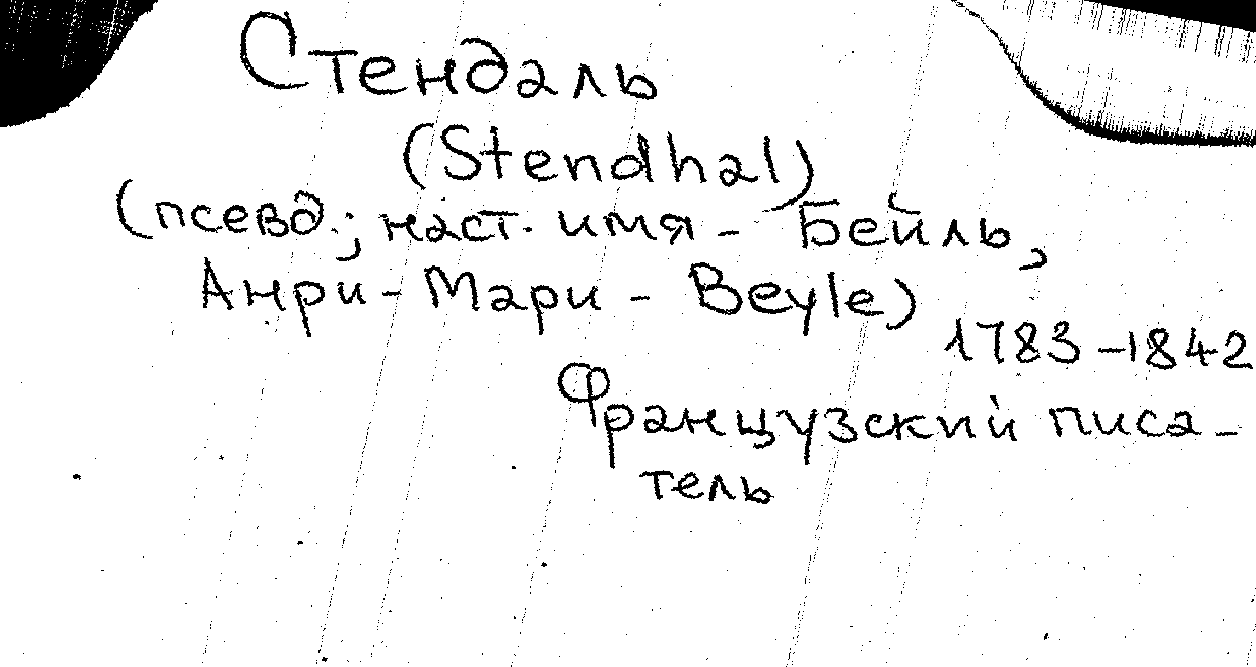 Стендаль
(Stendhal)
(псевд.; наст. имя - Бейль,
Анри-Мари - Beyle)
1783-1842
Французский писа-
тель